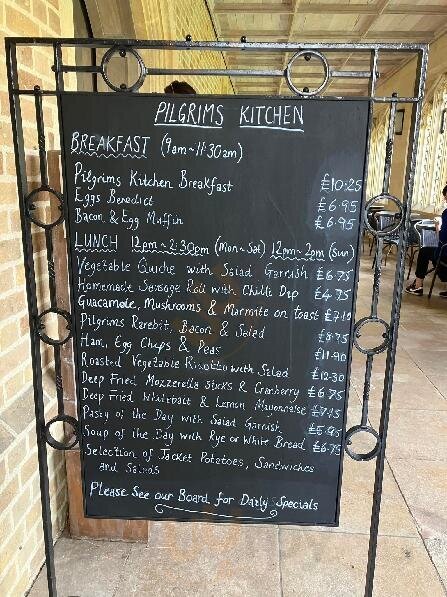 PILGRIMS KITCHEN
BREAKFAST (9am~11:30am)
Pilgrims Kitchen Breakfast £10.25
Eggs Benedict £6.95
Bacon & Egg Muffin £6.95
LUNCH 12pm~2:30pm (Mon~Sat) 12pm~2pm (Sun)
Vegetable Quiche with Salad Garnish £6.75
Homemade Sausage Roll with Chilli Dip £4.75
Guacamole, Mushrooms & Marmite on toast £7.10
Pilgrims Rarebit, Bacon & Salad £8.75
Ham, Egg Chips & Peas £11.90
Roasted Vegetable Risotto with Salad £12.30
Deep Fried Mozzerella Sticks & Cranberry £6.75
Deep Fried Whitebait & Lemon Mayonnaise £7.15
Pasty of the Day with Salad Garnish £5.95
Soup of the Day with Rye or White Bread £6.75
Selection of Jacket Potatoes, Sandwiches
and Salads
Please See our Board for Daily Specials